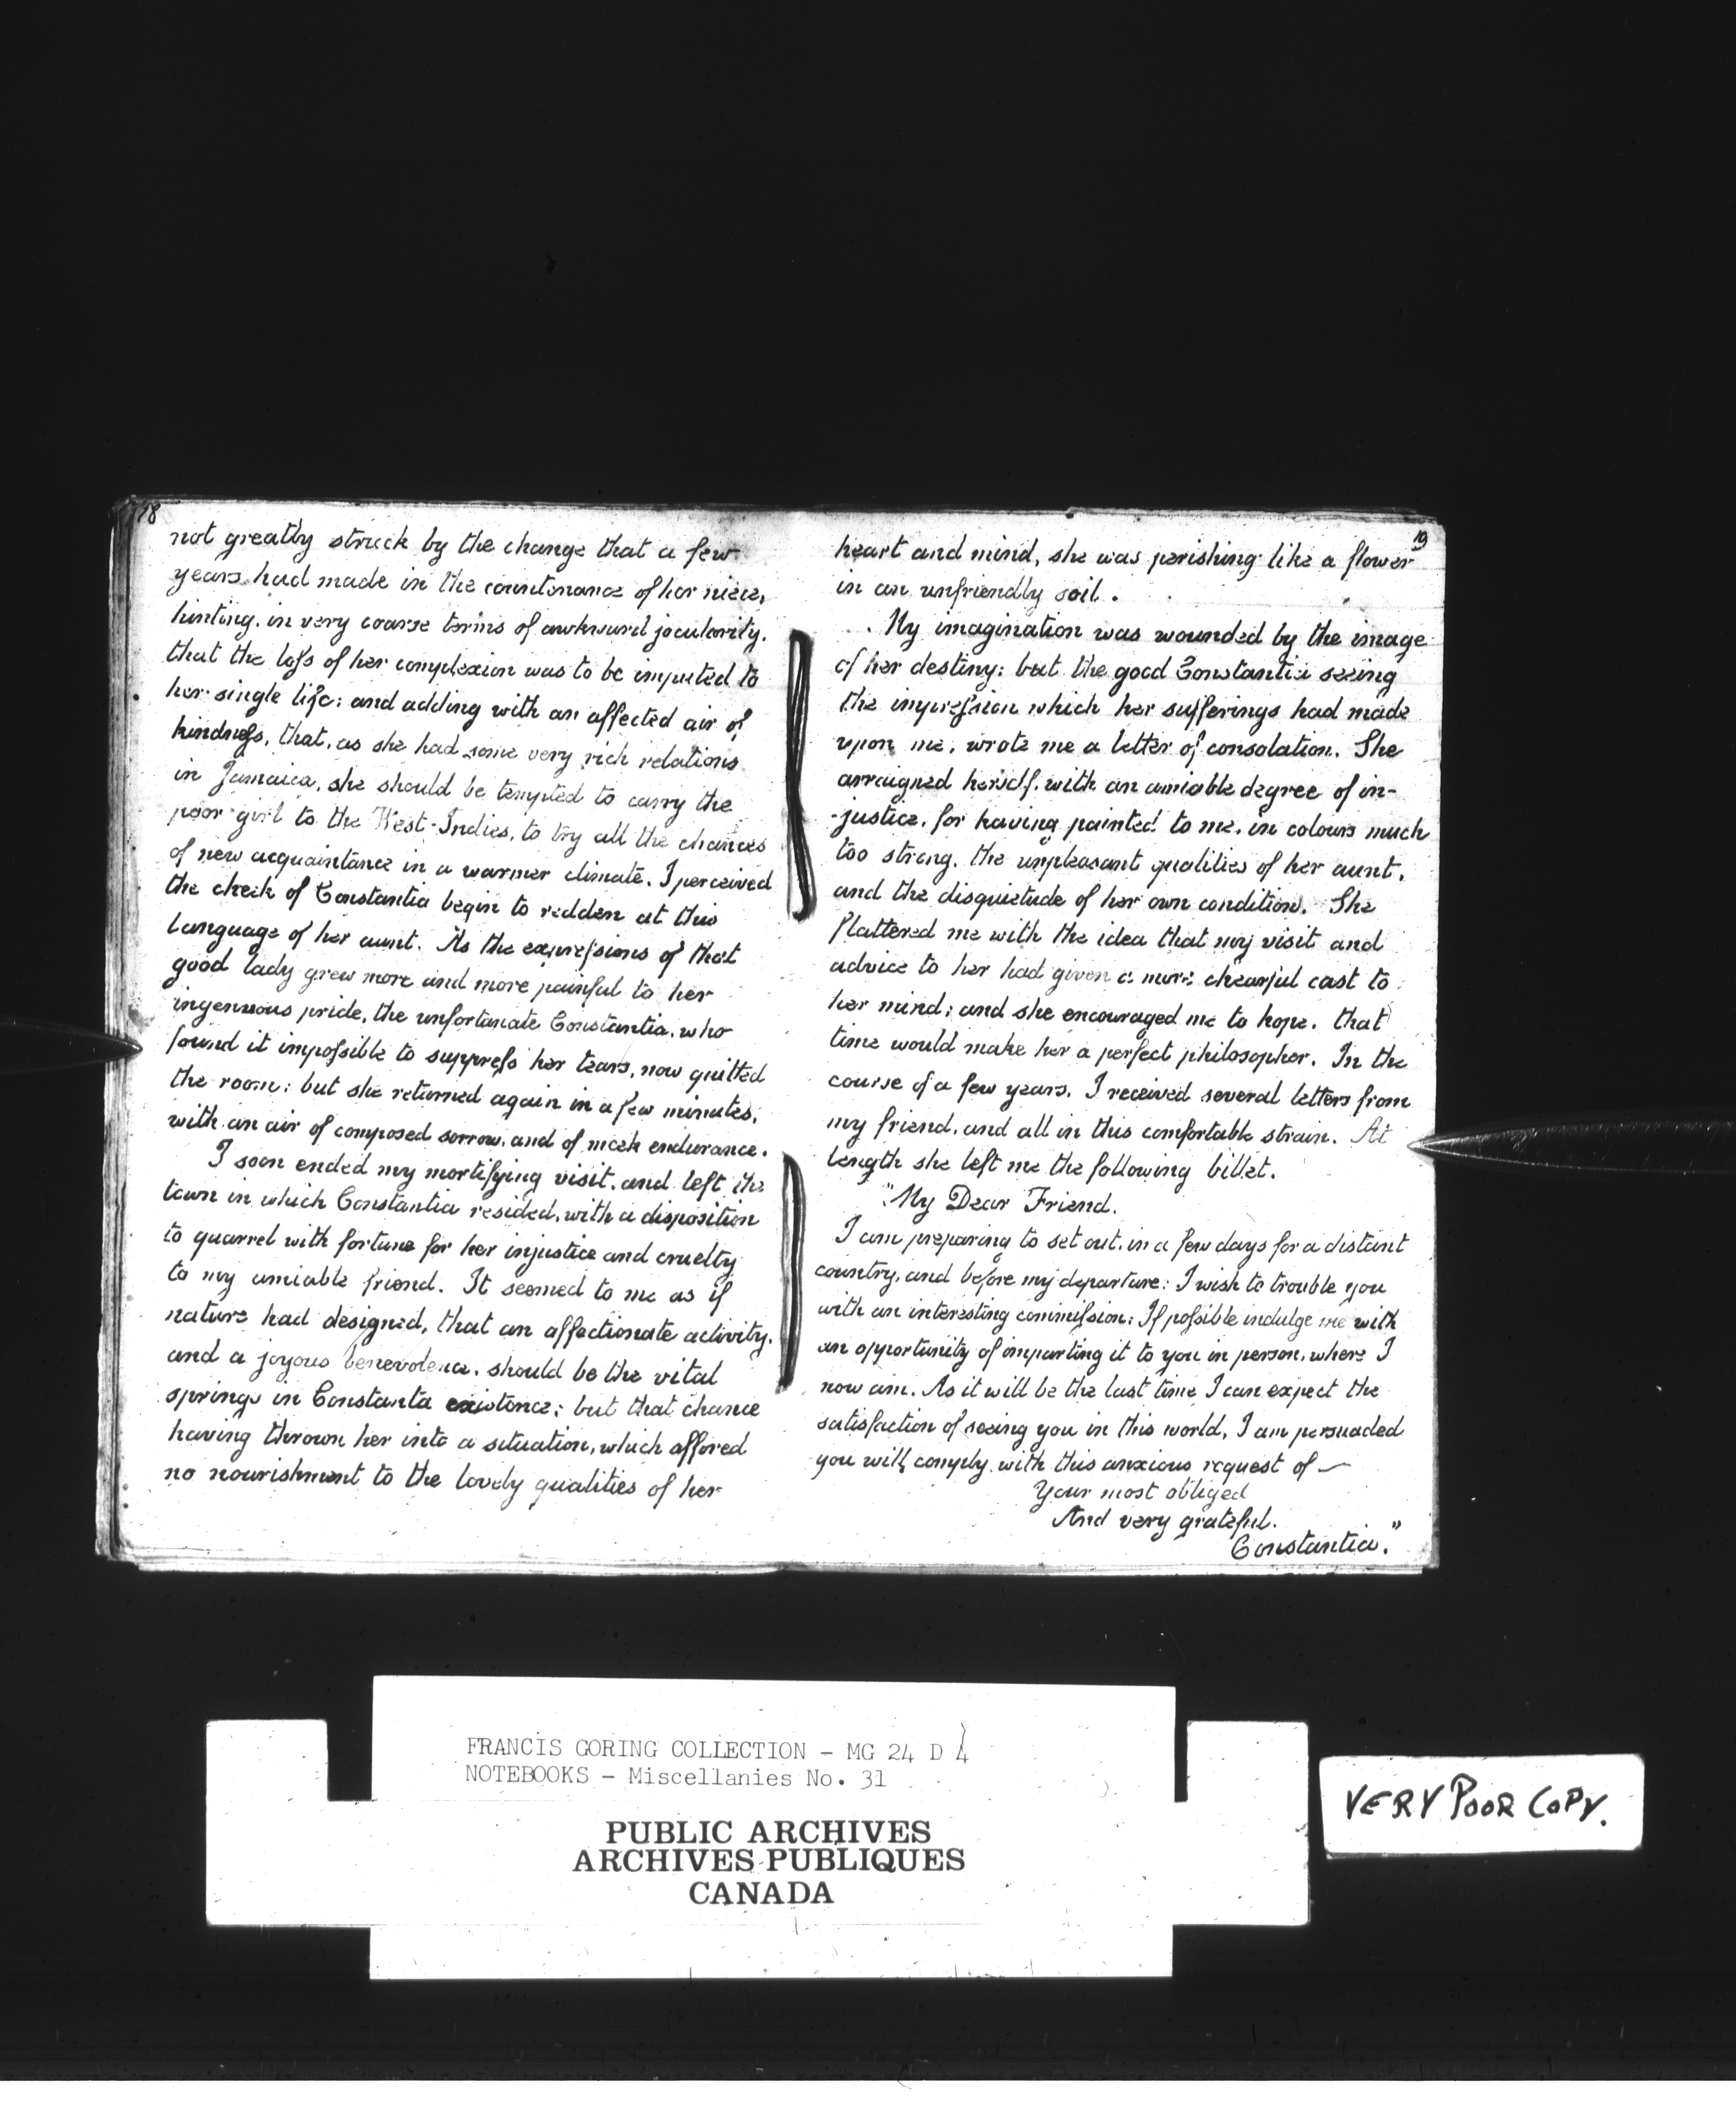 18
not greatly struck by the change that a few
years had made in the countenance of her niece,
hinting, in very coarse terms of awkward jocularity,
that the loſs of her complexion was to be imputed to
her single life; and adding with an affected air of
kindneſs, that, as she had some very rich relations
in Jamaica, she should be tempted to carry the
poor girl to the West-Indies, to try all the chances
of new acquaintance in a warmer climate. I perceived
the cheek of Constantia begin to redden at this
language of her aunt. As the expreſsions of that
good lady grew more and more painful to her
ingenuous pride, the unfortunate Constantia, who
found it impoſsible to suppreſs her tears, now quitted
the room; but she returned again in a few minutes,
with an air of composed sorrow, and of meek endurance.
I soon ended my mortifying visit, and left the
town in which Constantia resided, with a disposition
to quarrel with fortune for her injustice and cruelty
to my amiable friend. It seemed to me as if
nature had designed, that an affectionate activity,
and a joyous benevolence, should be the vital
springs in Constanta existence; but that chance
having thrown her into a situation, which affored
no nourishment to the lovely qualities of her
19
heart and mind, she was perishing like a flower
in an unfriendly soil.
My imagination was wounded by the image
of her destiny; but the good Constantia seeing
the impreſsion which her sufferings had made
upon me, wrote me a letter of consolation. She
arraigned herself, with an amiable degree of in-
-justice, for having painted to me, in colours much
too strong, the unpleasant qualities of her aunt,
and the disquietude of her own condition. She
flattered me with the idea that my visit and
advice to her had given a more chearful cast to
her mind; and she encouraged me to hope, that
time would make her a perfect philosopher. In the
course of a few years, I received several letters from
my friend, and all in this comfortable strain. At
length she left me the following billet.
"My Dear Friend.
I am preparing to set out, in a few days for a distant
country, and before my departure; I wish to trouble you
with an interesting commiſsion; If poſsible indulge me with
an opportunity of imparting it to you in person, where I
now am. As it will be the last time I can expect the
satisfaction of seeing you in this world, I am persuaded
you will comply with this anxious request of —
Your most obliged
And very grateful.
Constantia."
FRANCIS GORING COLLECTION - MG 24 D 4
NOTEBOOKS - Miscellanies No. 31
PUBLIC ARCHIVES
ARCHIVES PUBLIQUES
CANADA
VERY POOR COPY.